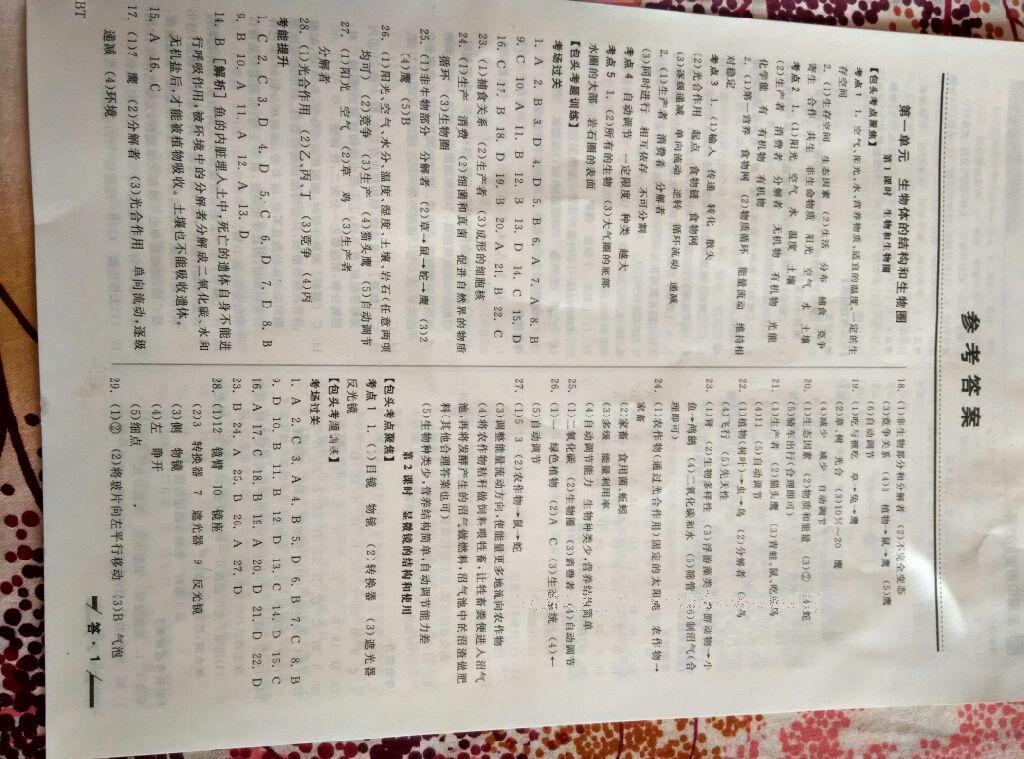 参考答案
第一单元 生物体的结构和生物圈
第1课时 生物和生物圈
【包头考点聚焦】
考点1 1. 空气、阳光、水、营养物质、适宜的温度、一定的生
存空间
2. (1)生存空间 生态因素 (2)生活 分布 捕食 竞争
寄生 合作 共生 非生命物质 阳光 空气 水 土壤
考点2 1. (1)阳光 空气 水 温度 土壤
(2)生产者 消费者 分解者 无机物 有机物 光能
化学能 有 有机物 有机物
2. (1)第一营养 食物网 (2)物质循环 能量流动 维持相
对稳定
考点3 1. (1)输入 传递 转化 散失
(2)光合作用 起点 食物链 食物网
(3)逐级递减 单向流动 逆转 循环流动 递减
2. (1)生产者 消费者 分解者
(3)同时进行 相互依存 不可分割
考点4 自动调节 一定限度 种类 越大
考点5 1. (2)所有的生物 (3)大气圈的底部
水圈的大部 岩石圈的表面
【包头考题训练】
考场过关
1. A 2. B 3. D 4. D 5. B 6. A 7. A 8. B
9. C 10. A 11. B 12. B 13. D 14. C 15. D
16. C 17. B 18. D 19. B 20. A 21. B 22. C
23. (1)捕食关系 (2)生产者 (3)成形的细胞核
24. (1)生产 消费 (2)细菌和真菌 促进自然界的物质
循环 (3)生物圈
25. (1)非生物部分 分解者 (2)草→鼠→蛇→鹰 (3)2
(4)鹰 (5)B
26. (1)阳光、空气、水分、温度、湿度、土壤、岩石(任意两项
均可) (2)竞争 (3)生产 (4)猫头鹰 (5)自动调节
27. (1)阳光 空气 (2)草 鸡 (3)生产者
分解者
28. (1)光合作用 (2)乙、丙、丁 (3)竞争 (4)丙
考能提升
1. C 2. C 3. D 4. D 5. C 6. D 7. D 8. B
9. B 10. A 11. A 12. A 13. D
14. B [解析]鱼的内脏埋入土中,死亡的遗体自身不能进
行呼吸作用,被环境中的分解者分解成二氧化碳、水和
无机盐后,才能被植物吸收。土壤也不能吸收遗体。
15. A 16. C
17. (1)? 鹰 (2)分解者 (3)光合作用 单向流动,逐级
递减 (4)环境
18. (1)非生物部分和分解者 (2)不完全变态
(3)竞争关系 (4)3 植物→鼠→鹰 (5)鹰
(6)自动调节
19. (1)吃与被吃 草→兔→鹰
(2)草、树 光合 (3)10%~20 鹰
(4)减少 减少 自动调节
20. (1)生态因素 (2)物质和能量 (3)② (4)蛇
(5)骑车出行(合理即可)
21. (1)生产者 (2)猫头鹰 (3)青蛙、鼠、吃虫鸟
(4)11 (5)自动调节
22. (1)植物(树叶)→虫→鸟 (2)分解者
(4)飞行 (5)先天性
23. (1)肾 (2)生物多样性 (3)浮游藻类→ 游动物→小
鱼→鸿鹄 (4)二氧化碳和水 (5)筛管 (6)制沼气(合
理即可)
24. (1)农作物(通过光合作用)固定的太阳能 农作物→
家畜
(2)家畜 食用菌、蚯蚓
(3)多级 能量利用率
(4)自动调节能力 生物种类少,营养结构简单
25. (1)二氧化碳 (2)生物圈 (3)消费者 (4)自动调节
26. (1)— 绿色植物 (2)A C (3)生态系统 (4)←
(5)自动调节
27. (1)5 3 (2)农作物→鼠→蛇
(3)调整能量流动方向,使能量更多地流向农作物
(4)将农作物秸秆做饲料喂牲畜;让牲畜粪便进入沼气
池,再将发酵产生的沼气做燃料,沼气池中的沼渣做肥
料(其他合理答案也可)
(5)生物种类少,营养结构简单,自动调节能力差
第2课时 显微镜的结构和使用
【包头考点聚焦】
考点1 1. (1)目镜 物镜 (2)转换器 (3)遮光器
反光镜
【包头考题训练】
考场过关
1. A 2. C 3. A 4. B 5. D 6. B 7. C 8. B
9. D 10. B 11. B 12. D 13. C 14. D 15. C
16. A 17. C 18. B 19. A 20. D 21. D 22. D
23. B 24. A 25. D 26. A 27. D
28. (1)12 镜臂 10 镜座
(2)3 转换器 7 遮光器 9 反光镜
(3)侧 物镜
(4)左 睁开
(5)细点
29. (1)② (2)将玻片向左平行移动 (3)B 气泡
答·1
BT